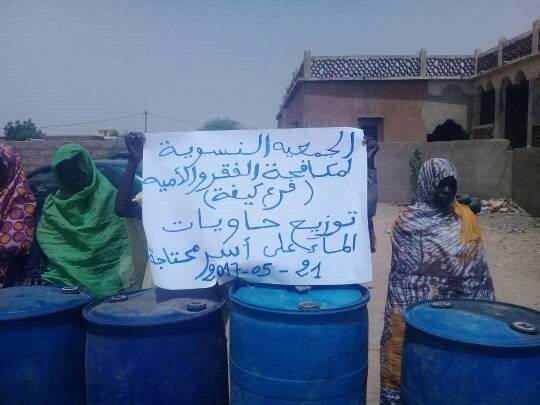 الجمعية النسوية
لمكافحة الفقر والأمية
(فرع كيفة)
توزيع حاويات
الماء على أسر محتاجة
2017-05-21